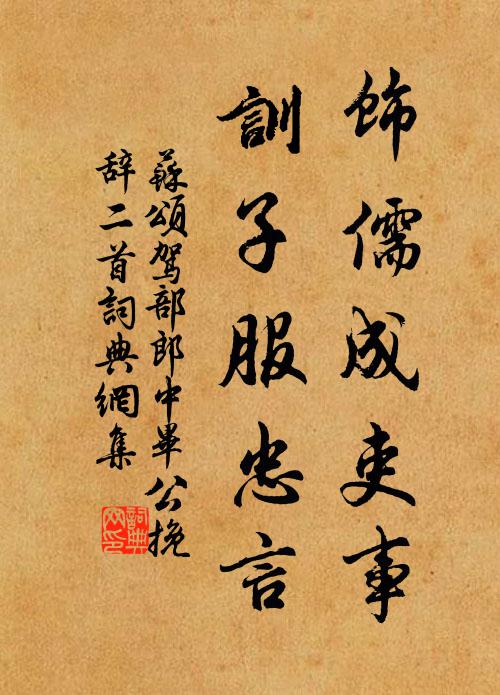 飾儒成吏事
訓子服忠言
蘇頌駕部郎中畢公挽
辞二首詞典網集
詞典網印